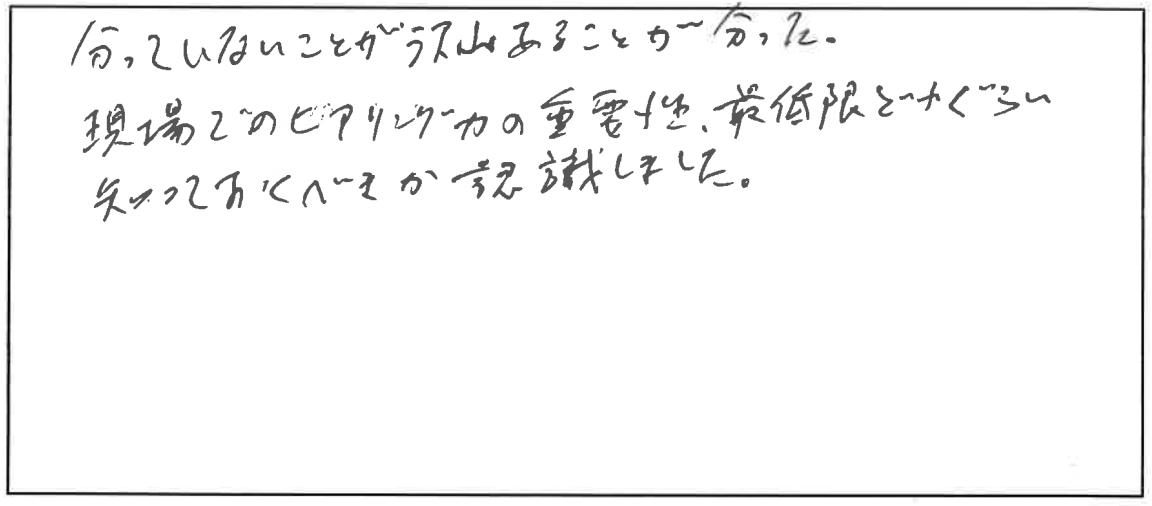 分っていないことが沢山あることが分った。
現場でのヒアリング力の重要性、最低限どれくらい
知っておくべきか認識しました。